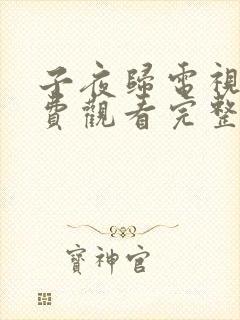 子夜歸電視
費觀看完整
寶神官